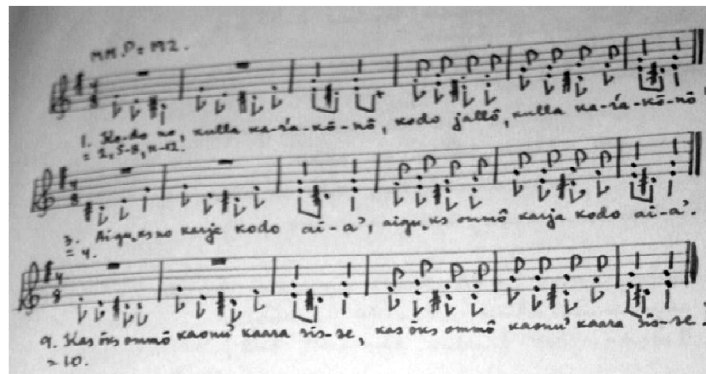 MM. ♪= 192.
1. Kodo no, kulla ka-ŕa-kõ-nõ, kodo jallõ, kulla ka-ŕa-kõ-nõ!
= 2, 5-8, 11-12.
3. Aigu, ks no karja kodo ai-a', aigu, ks ommõ karja kodo ai-a'.
= 4.
9. Kas õks ommõ kaonu' kaara sis-se, kas õks ommõ kaonu' kaara sis-se.
= 10.